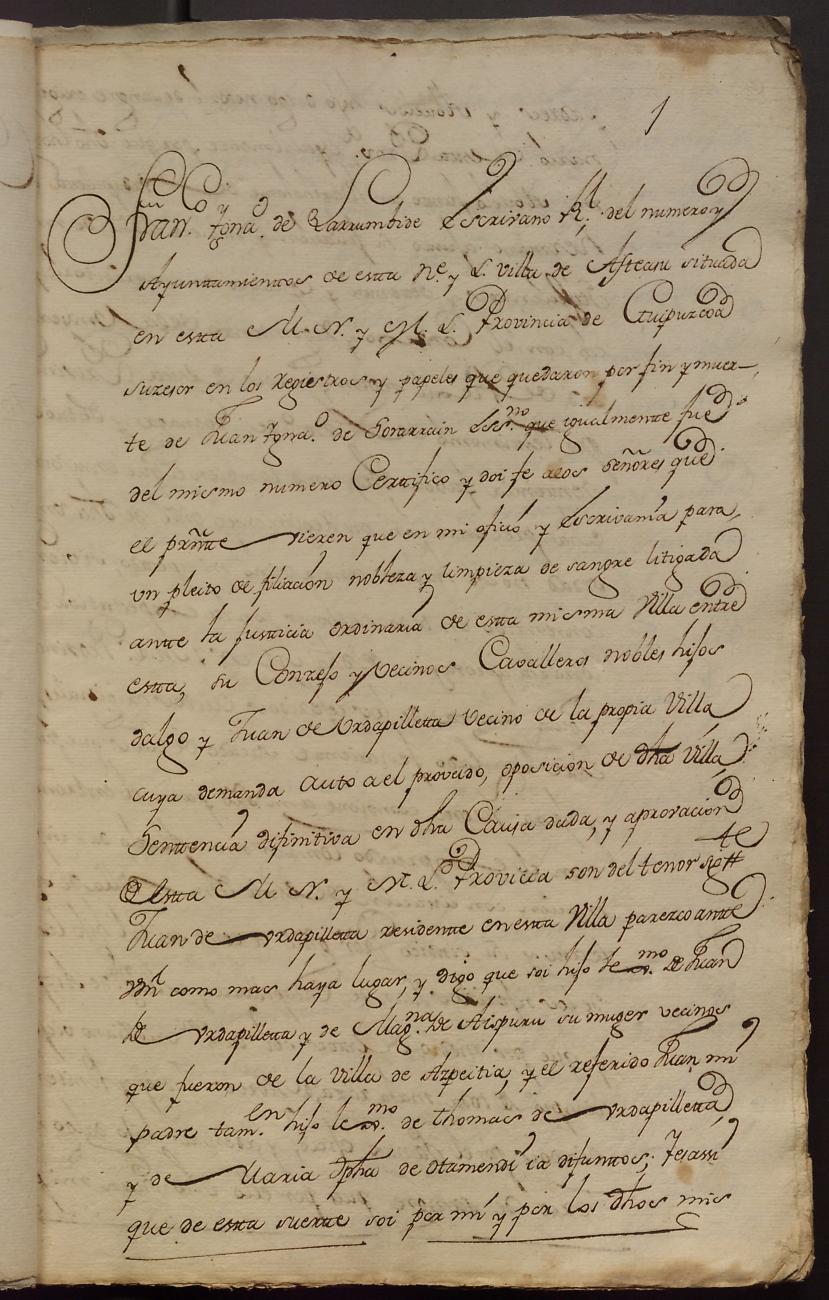 1
Fran.co Ygna.o de Larrumbide Escrivano R.l del numero y
Ayunttamienttos de estta N.e y L. villa de Asteasu situada
en estta M. N. y M. L. Provincia de Guipuzcoa
suzesor en los Registros y papeles que quedaron por fin y muer-
te de Juan Ygna.o de Sorarrain Ess.no que igualmentte fue
del mismo numero Certtifico y doi fe a los Señores que
el prñtte vieren que en mi oficio y Escrivania para
un pleito de filiacion nobleza y limpieza de sangre litigada
antte la Justicia ordinaria de estta misma Villa entre
estta, su Conzejo y Vecinos Cavalleros nobles hijos
dalgo y Juan de Urdapilletta Vecino de la propia Villa
cuya demanda Auto a el proveido, oposicion de dha Villa
Senttencia difinitiva en dha Causa dada, y aprovacion
de estta M. N. y M. L. Provicia son del tenor sigtte
Juan de Urdapilletta residentte en estta Villa parezco antte
Vm como mas haya lugar, y digo que soi hijo le.mo de Juan
de Urdapilletta y de Mag.na de Aispuru su muger vecinos
que fueron de la Villa de Azpeitia, y el referido Juan mi
padre tam.en hijo le.mo de Thomas de Urdapilletta
y de Maria Jpha de Otamendi ia difunttos; Yesassi
que de estta suertte soi por mi y por los dhos mis